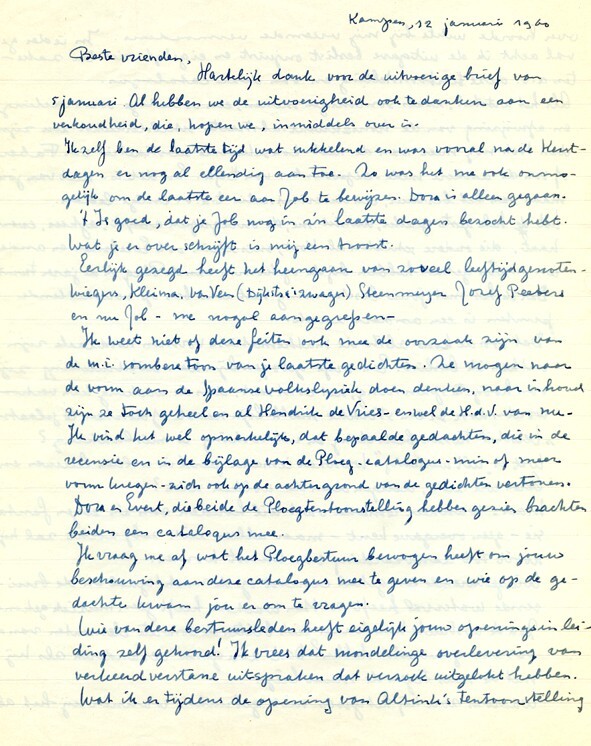 Kampen, 12 januari 1960
Beste vrienden,
Hartelijk dank voor de uitvoerige brief van
5 januari Al hebben we de uitvoerigheid ook te danken aan een
verkoudheid, die, hopen we, inmiddels over is.
Ik zelf ben de laatste tijd wat sukkelend en was vooral na de Kerst-
dagen er nog al ellendig aan toe. Zo was het me ook onmo-
gelijk om de laatste eer aan Job te bewijzen. Dora is alleen gegaan.
't Is goed, dat je Job nog in z'n laatste dagen bezocht hebt.
Wat je er over schrijft is mij een troost.
Eerlijk gezegd heeft het heengaan van zoveel leeftijdgenoten-
Wiegers, Kleima, van Veen (Dijkstra's zwager) Steenmeyer Jozef Peeters
en nu Job - me nogal aangegrepen-
Ik weet niet of deze feiten ook mee de oorzaak zijn van
de m.i. sombere toon van je laatste gedichten. Ze mogen naar
de vorm aan de Spaanse volkslyriek doen denken, naar inhoud
zijn ze toch geheel en al Hendrik de Vries - en wel de H.d.V. van nu-
Ik vind het wel opmerkelijk, dat bepaalde gedachten, die in de
recensie en in de bijlage van de Ploeg-catalogus-min of meer
vorm kregen-zich ook op de achtergrond van de gedichten vertonen.
Dora en Evert, die beide de Ploegtentoonstelling hebben gezien brachten
beiden een catalogus mee.
Ik vraag me af wat het Ploegbestuur bewogen heeft om jouw
beschouwing aan deze catalogus mee te geven en wie op de ge-
dachte kwam jou er om te vragen.
Wie van deze bestuursleden heeft eigelijk jouw openingsinlei-
ding zelf gehoord! Ik vrees dat mondelinge overlevering van
verkeerd verstane uitspraken dat verzoek uitgelokt hebben.
Wat ik er tijdens de opening van Altink's tentoonstelling